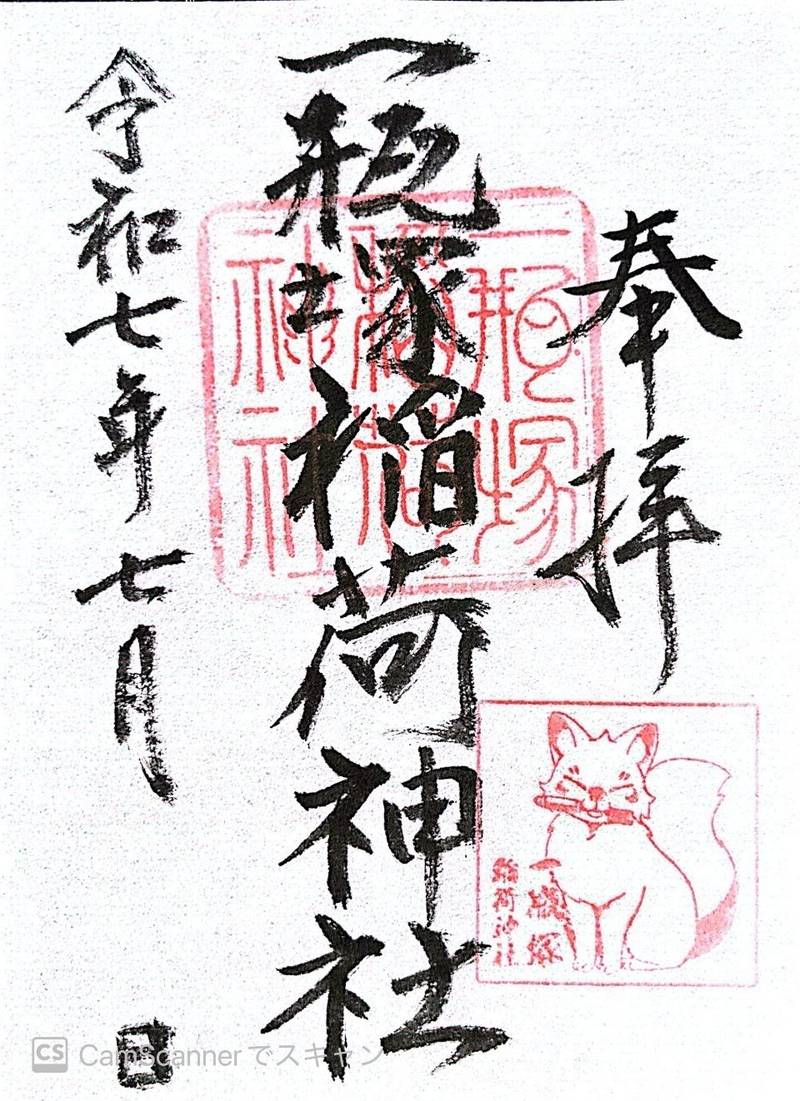 奉拝
一瓶塚稲荷神社
令和七年七月 日
一瓶塚
稲荷
神社
一瓶塚
稲荷神社
CS CamScanner でスキャン